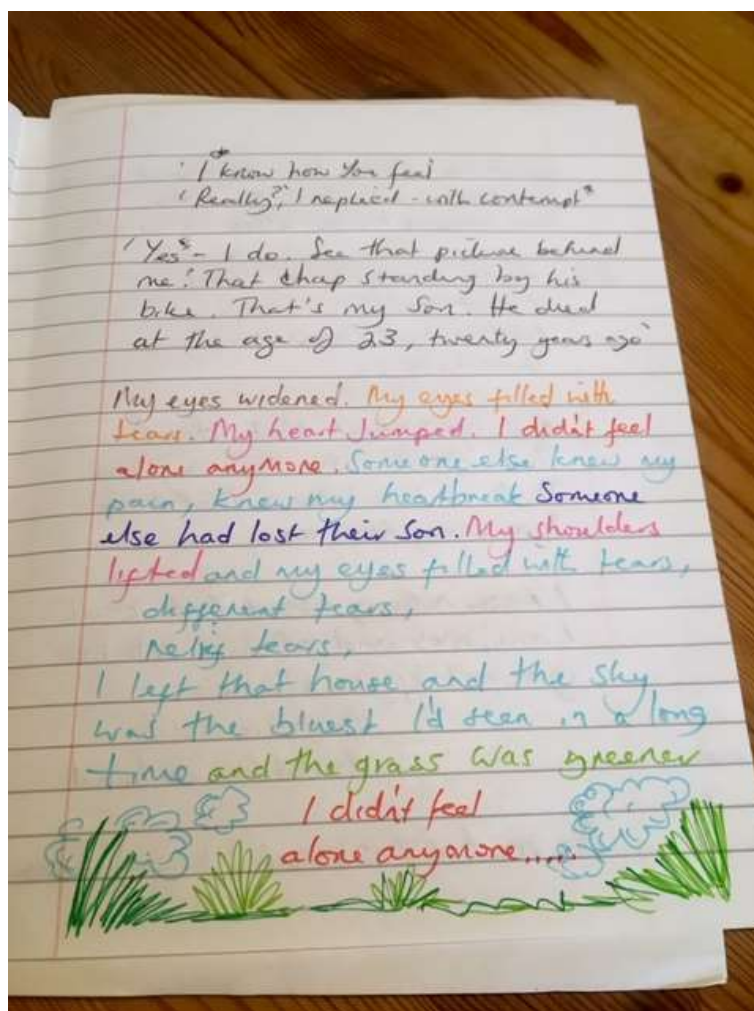 'I know how you feel
'Really?', I replied - with contempt"
'Yes" - I do. See that picture behind
me! That chap standing by his
bike. That's my son. He died
at the age of 23, twenty years ago'
My eyes widened. My eyes filled with
tears. My heart Jumped. I didn't feel
alone anymore. Someone else knew my
pain, knew my heartbreak Someone
else had lost their son. My shoulders
lifted and my eyes filled with tears,
different tears,
relief tears,
I left that house and the sky
was the bluest I'd seen in a long
time and the grass was greener
I didn't feel
alone anymore.....